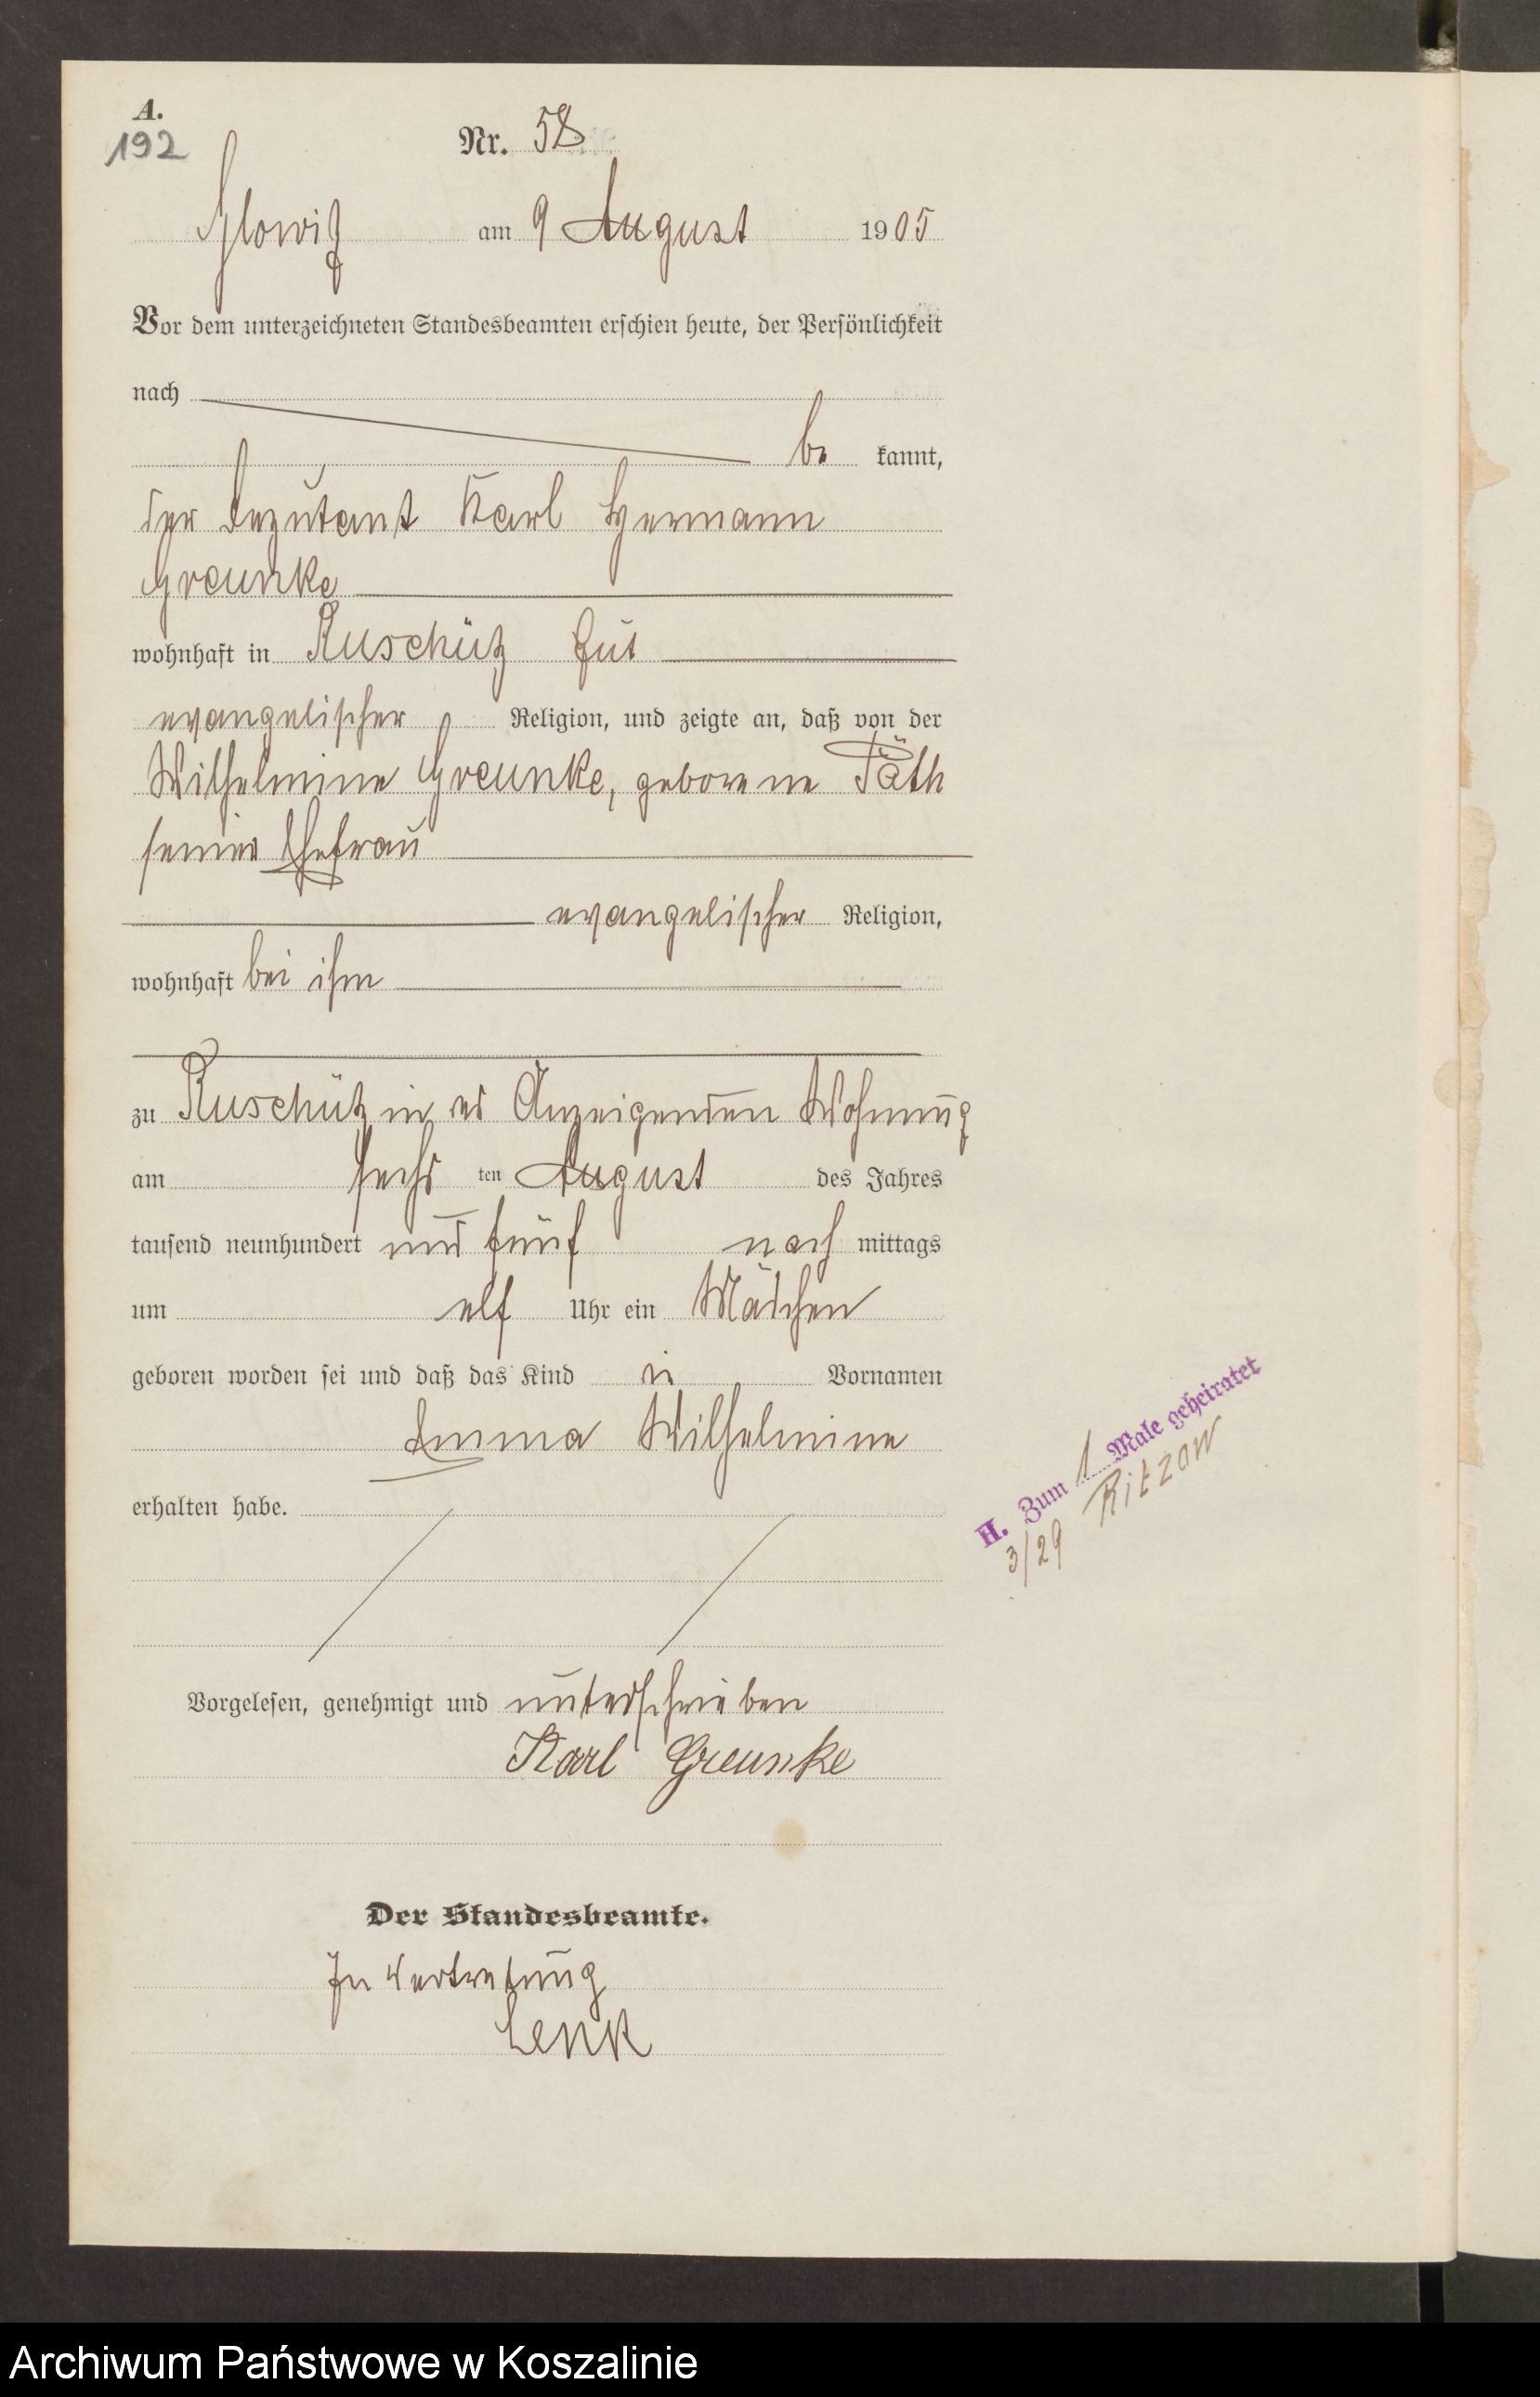 A.
192
Nr. 58
Glowitz am 9 August 1905
Vor dem unterzeichneten Standesbeamten erschien heute, der Persönlichkeit
nach
be kannt,
der Deputant Karl Hermann
Greunke
wohnhaft in Ruschütz Gut
evangelischer Religion, und zeigte an, daß von der
Wilhelmine Greunke, geborene Päth
seiner Ehefrau
evangelischer Religion,
wohnhaft bei ihm
zu Ruschütz in des Anzeigenden Wohnung
am sechs ten August des Jahres
tausend neunhundert und fünf nach mittags
um elf Uhr ein Mädchen
geboren worden sei und daß das Kind die Vornamen
Emma Wilhelmine
erhalten habe.
H. Zum 1 Male geheiratet
3/29 Ritzow
Vorgelesen, genehmigt und unterschrieben
Karl Greunke
Der Standesbeamte.
In Vertretung
Lenk
Archiwum Państwowe w Koszalinie